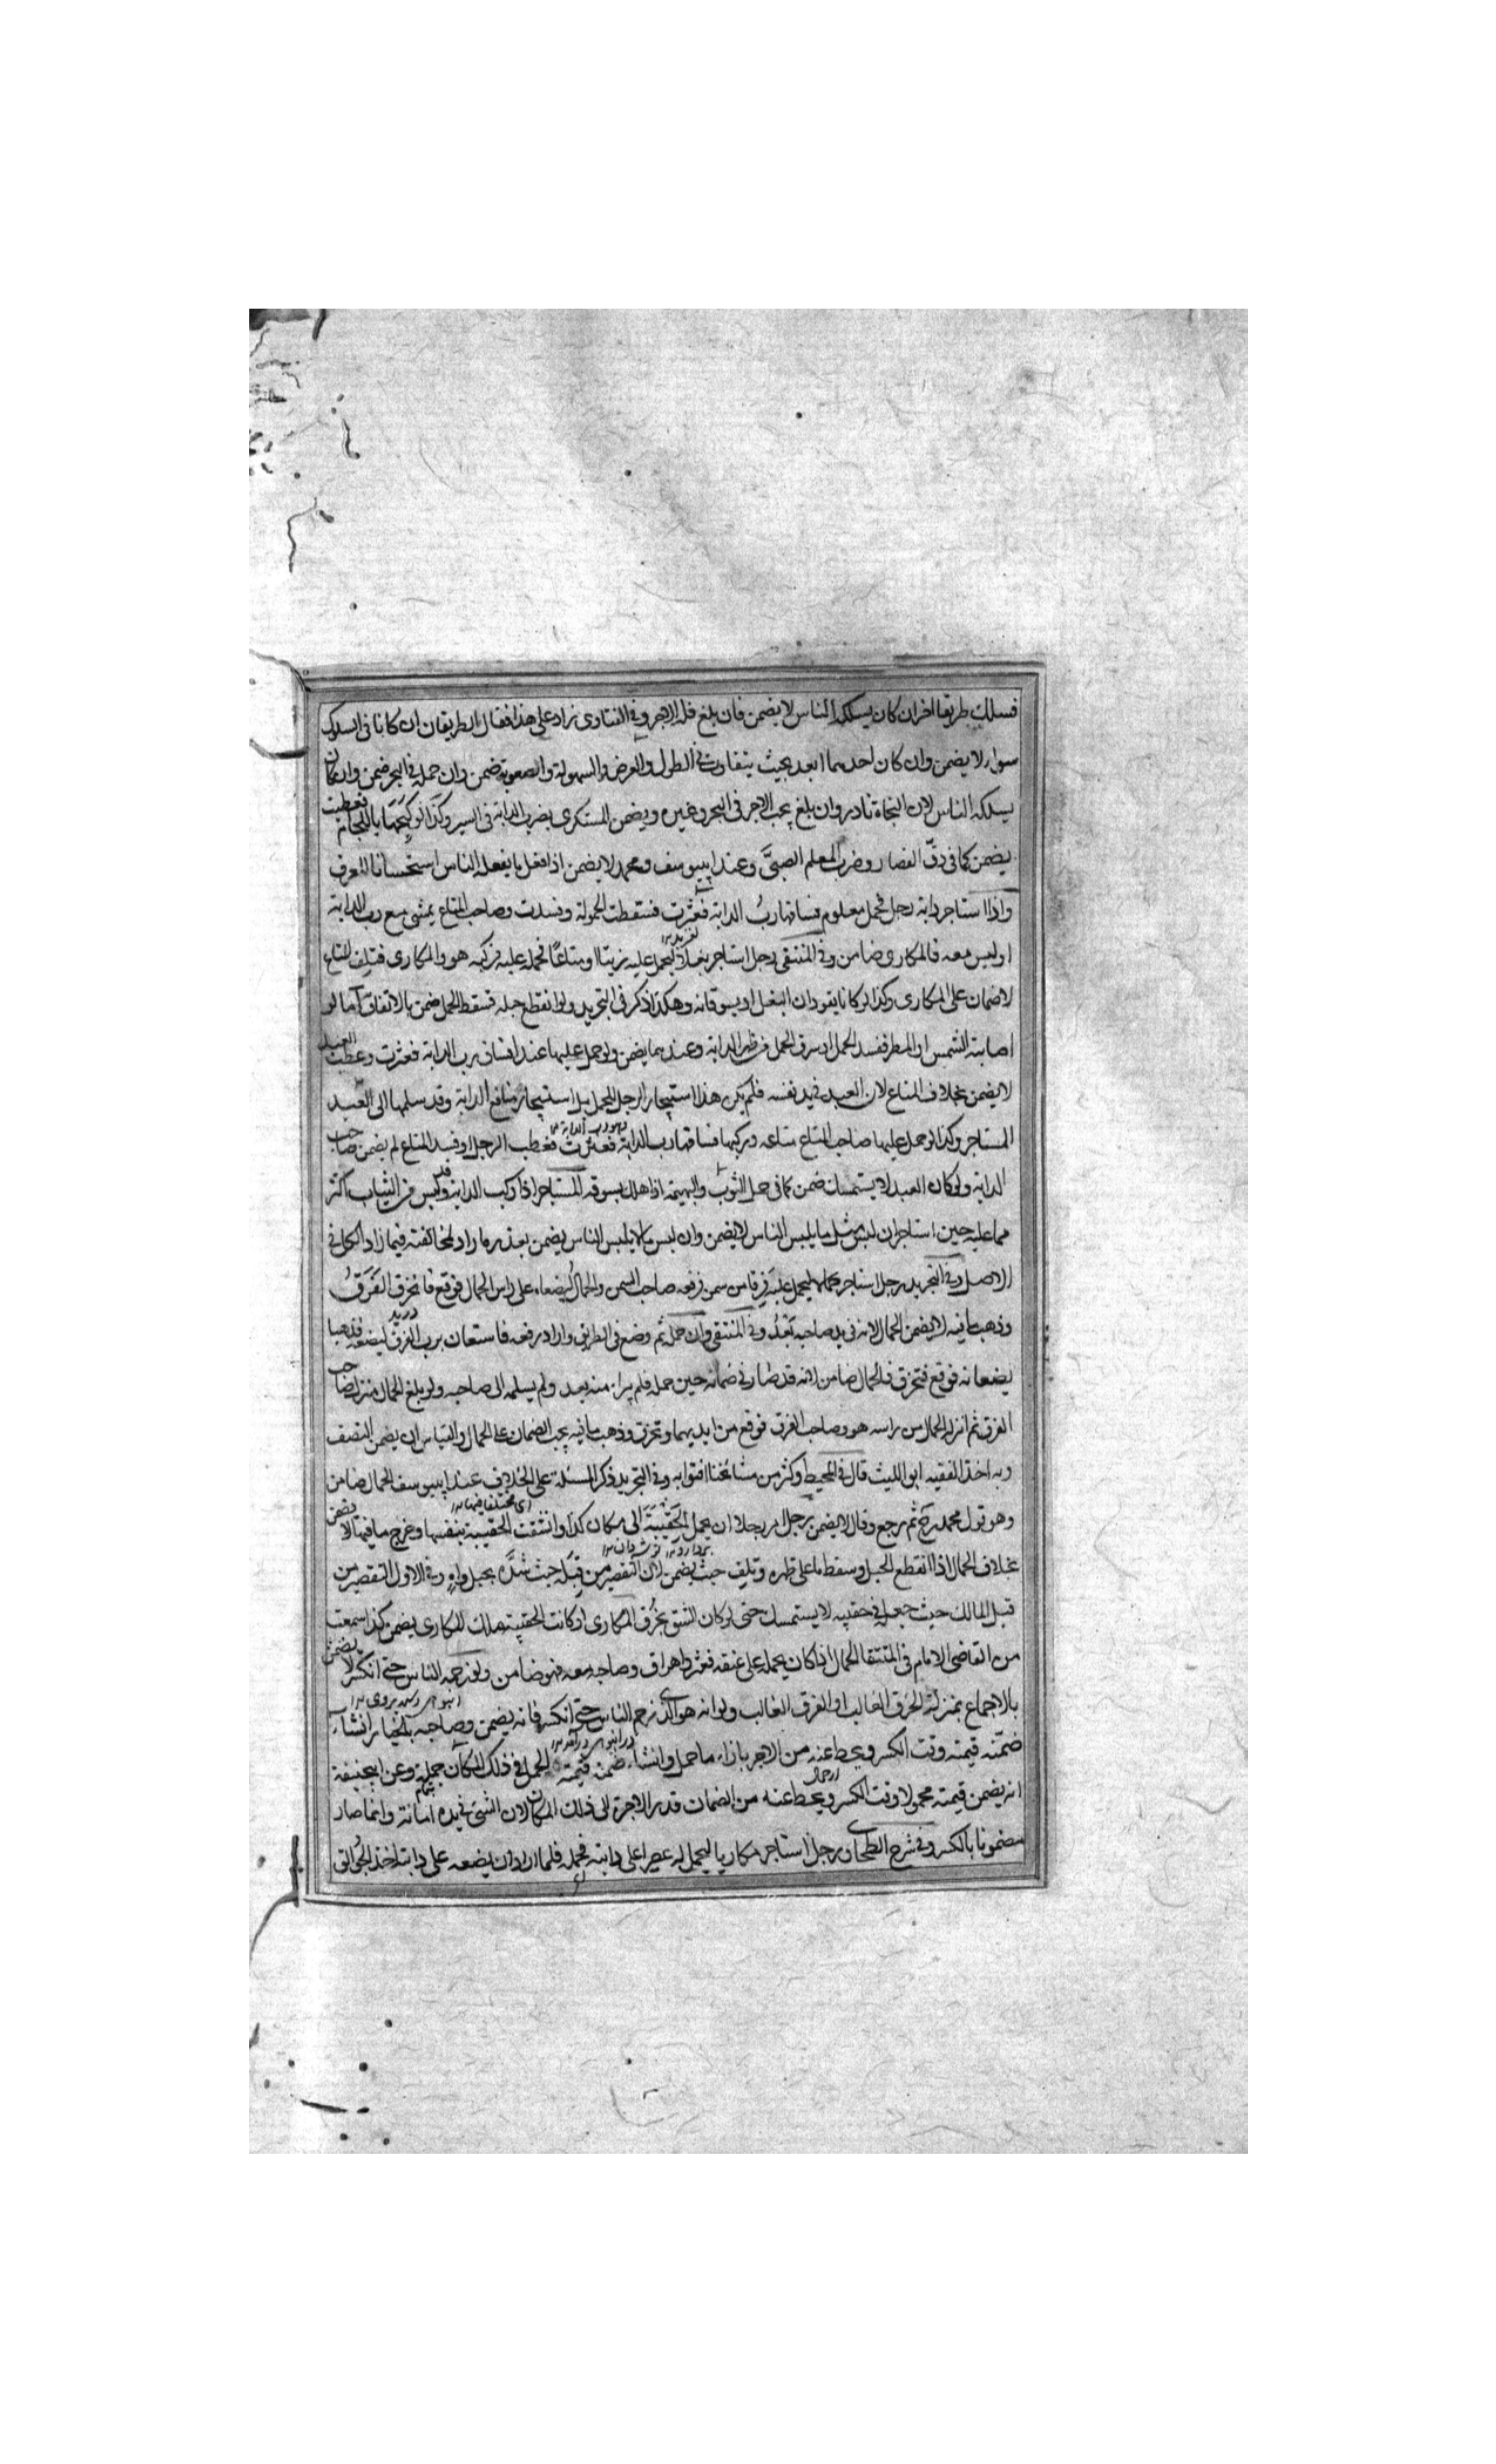 فسلك طريقا اخر ان كان يسلكه الناس لا يضمن فان بلغ فله الاجر وفي الفتاوى زاد على هذا فقال الطريقان ان كانا فى السلوك
سواء لا يضمن وان كان احدهما ابعد بحيث يتفاوت في الطول والعرض والسهولة والصعوبة ضمن وان حمله في البحر ضمن وان كان
يسلكه الناس لان النجاة نادر وان بلغ يجب الاجر فى البحر وغيره ويضمن المستكرى بضرب الدابة فى السير وكذا لو كبحها باللجام فعطبت
يضمن كما فى دق القصار وضرب المعلم الصبى وعند ابييوسف ومحمد لا يضمن اذا فعل ما يفعله الناس استحسانا للتعرف
واذا استاجر دابة رجل لحمل معلوم فساقها رب الدابة فعثرت فسقطت الحمولة وفسدت وصاحب المتاع يمشى مع رب الدابة
او ليس معه فالمكارى ضامن وفي المنتقى رجل استاجر بغلا ليحمل عليه زيتا او متاعا فحمله عليه فركبه هو والمكارى فتلف المتاع
لا ضمان على المكارى وكذا لو كانا يقودان البغل او يسوقانه وهكذا ذكر فى التجريد ولو انقطع حبله فسقط الحمل ضمن بالاتفاق اما لو
اصابته الشمس او المطر ففسد الحمل او سرق الحمل من ظهر الدابة وعندهما يضمن ولو حمل عليها عبدا فساق رب الدابة فعثرت وعطب العبد
لا يضمن بخلاف المتاع لان العبد في يد نفسه فلم يكن هذا استيجار الرجل ليحمل بل استيجار منافع الدابة وقد سلمها الى العبد
المستاجر وكذا لو حمل عليها صاحب المتاع متاعه وركبها فساقها رب الدابة فعثرت فعطب الرجل او فسد المتاع لم يضمن صاحب
الدابة ولو كان العبد لا يستمسك ضمن كما فى حمل الثوب والبهيمة اذا هلك بسوقه المستاجر اذا ركب الدابة ولبس من الثياب اكثر
مما عليه حين استاجر ان لبس مثل ما يلبس الناس لا يضمن وان لبس ما لا يلبس الناس يضمن بقدر ما زاد لمخالفته فيما زاد الكل فى
الاصل وفي التجريد رجل استاجر حمالا ليحمل عليه فرقا من سمن فرفعه صاحب السمن والحمال ليضعاه على راس الحمال فوقع فانخرق الفرق
وذهب ما فيه لا يضمن الحمال لانه فى يد صاحبه بعد وفي المنتقى وان حمله ثم وضع فى الطريق واراد رفعه فاستعان برب الفرق ليضعه فذهبا
يضعانه فوقع فتخرق فالحمال ضامن لانه قد صار في ضمانه حين حمله فلم يبرا منه بعد ولم يسلمه الى صاحبه ولو بلغ الحمال منزل صاحب
الفرق ثم انزله الحمال من راسه هو وصاحب الفرق فوقع من ايديهما وتخرق وذهب ما فيه يجب الضمان على الحمال والقياس ان يضمن النصف
وبه اخذ الفقيه ابو الليث قال في المحيط وكثر من مشائخنا افتوا به وفي التجريد ذكر المسئلة على الخلاف عند ابييوسف الحمال ضامن
وهو قول محمد رح ثم رجع وقال لا يضمن رجل امر رجلا ان يحمل الحقيبة الى مكان كذا وانشقت الحقيبة بنفسها وخرج ما فيها لا يضمن
بخلاف الحمال اذا انقطع الحبل وسقط ما على ظهره وتلف حيث يضمن لان التقصير من قبله حيث شده بحبل واه وفي الاول التقصير من
قبل المالك حيث جعله في حقيبه لا يستمسك حتى لو كان الشق بخرق المكارى او كانت الحقيبة ملك للمكارى يضمن كذا سمعت
من القاضى الامام فى المنتقا الحمال اذا كان يحمله على عنقه فعثر واهراق وصاحبه معه فهو ضامن ولو زحمه الناس حتى انكسر لا يضمن
بالاجماع بمنزلة الحرق الغالب او الغرق الغالب ولو انه هو الذى زحم الناس حتى انكسر فانه يضمن وصاحبه بالخيار ان شاء
ضمنه قيمته وقت الكسر ويحط عنه من الاجر بازاء ما حمل وان شاء ضمنه قيمة الحمل في ذلك المكان جملة وعن ابيحنيفة
انه يضمن قيمته محمولا وقت الكسر ويحط عنه من الضمان قدر الاجرة الى ذلك المكان لان الشئ في يده امانة وانما صار
مضمونا بالكسر وفي شرح الطحاوى رجل استاجر مكاريا ليحمل له عصيرا على دابته فحمله فلما اراد ان يضعه على دابته اخذ الجوالق